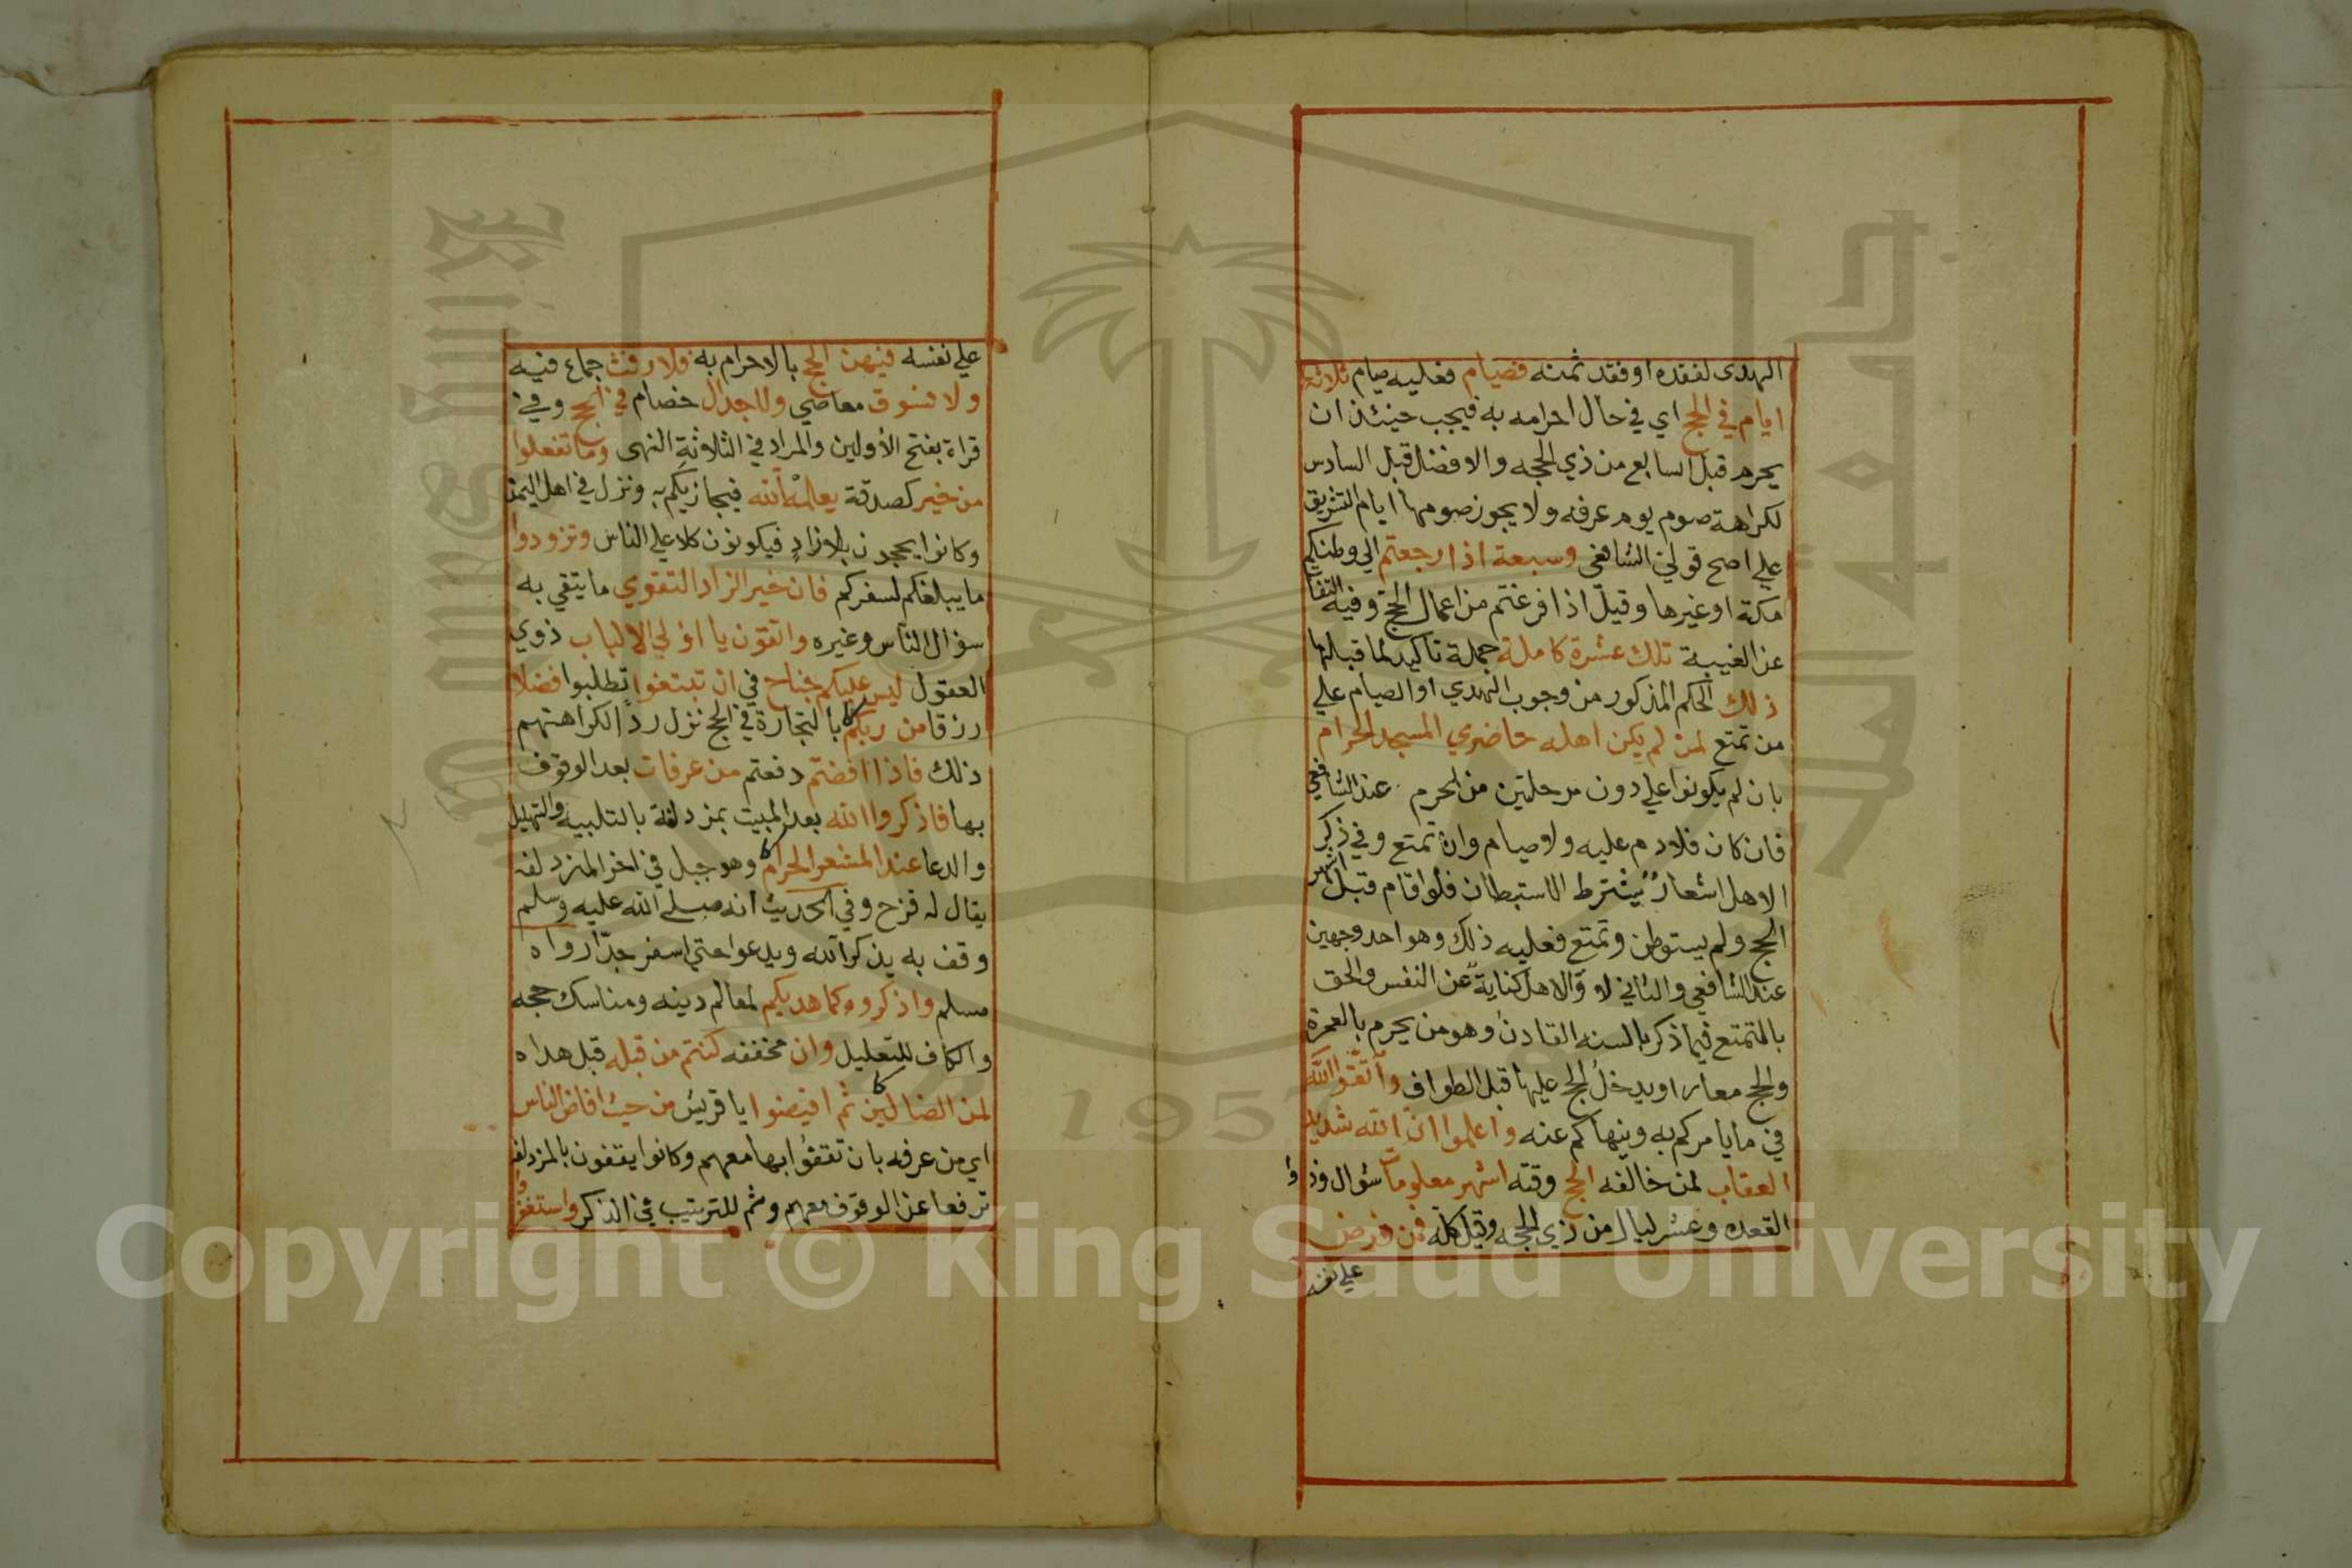 الهدى لفقده او فقد ثمنه فصيام فعليه صيام ثلاثة
ايام في الحج اي في حال احرامه به فيجب حينئذ ان
يحرم قبل السابع من ذي الحجه والافضل قبل السادس
لكراهة صوم يوم عرفه ولا يجوز صومها ايام التشريق
علي اصح قولي الشافعي وسبعة اذا رجعتم الي وطنكم
مكة او غيرها وقيل اذا فرغتم من اعمال الحج وفيه التفا
عن الغيبة تلك عشرة كاملة جملة تاكيد لما قبلها
ذلك الحكم المذكور من وجوب الهدي او الصيام علي
من تمتع لمن لم يكن اهله حاضري المسجد الحرام
بان لم يكونوا علي دون مرحلتين من الحرم عند الشافعي
فان كان فلا دم عليه ولا صيام وان تمتع وفي ذكر
الاهل اشعار يشترط الاستيطان فلو اقام قبل اشهر
الحج ولم يستوطن وتمتع فعليه ذلك وهو احد وجهين
عند الشافعي والثاني لا والاهل كناية عن النفس والحق
بالمتمتع فيما ذكر بالسنه القادن وهو من يحرم بالعمرة
والحج معا او يدخل الحج عليها قبل الطواف واتقوا الله
في ما يامركم به وينهاكم عنه واعلموا ان الله شديد
العقاب لمن خالفه الحج وقته اشهر معلومات شوال وذوا
القعده وعشر ليال من ذي الحجه وقيل كله فمن فرض
علي نفسه
علي نفسه فيهن الحج بالاحرام به فلا رفث جماع فيه
ولا فسوق معاصي ولا جدال خصام في الحج وفي
قراة بفتح الأولين والمراد في الثلاثة النهى وما تفعلوا
من خير كصدقة يعلمه الله فيجازيكم به ونزل في اهل اليمن
وكانوا يحجون بلا زاد فيكونون كلا علي الناس وتزودوا
ما يبلغكم لسفركم فان خير الزاد التقوي ما يتقي به
سؤال الناس وغيره واتقون يا اولي الالباب ذوي
العقول ليس عليكم جناح في ان تبتغوا تطلبوا فضلا
رزقا من ربكم بالتجارة في الحج نزل ردا لكراهتهم
ذلك فاذا افضتم دفعتم من عرفات بعد الوقوف
بها فاذكروا الله بعد المبيت بمزدلفة بالتلبيه والتهليل
والدعا عند المشعر الحرام وهو جبل في اخر المزدلفه
يقال له قزح وفي الحديث انه صلي الله عليه وسلم
وقف به يذكر الله ويدعوا حتي اسفر جدا رواه
مسلم واذكروه كما هديكم لمعالم دينه ومناسك حجه
والكاف للتعليل وان مخففه كنتم من قبله قبل هداه
لمن الضالين ثم افيضوا يا قريش من حيث افاض الناس
اي من عرفه بان تقفوا بها معهم وكانوا يقفون بالمزدلفه
ترفعا عن الوقوف معهم وثم للترتيب في الذكر واستغفروا
Copyright © King Saud University
1957